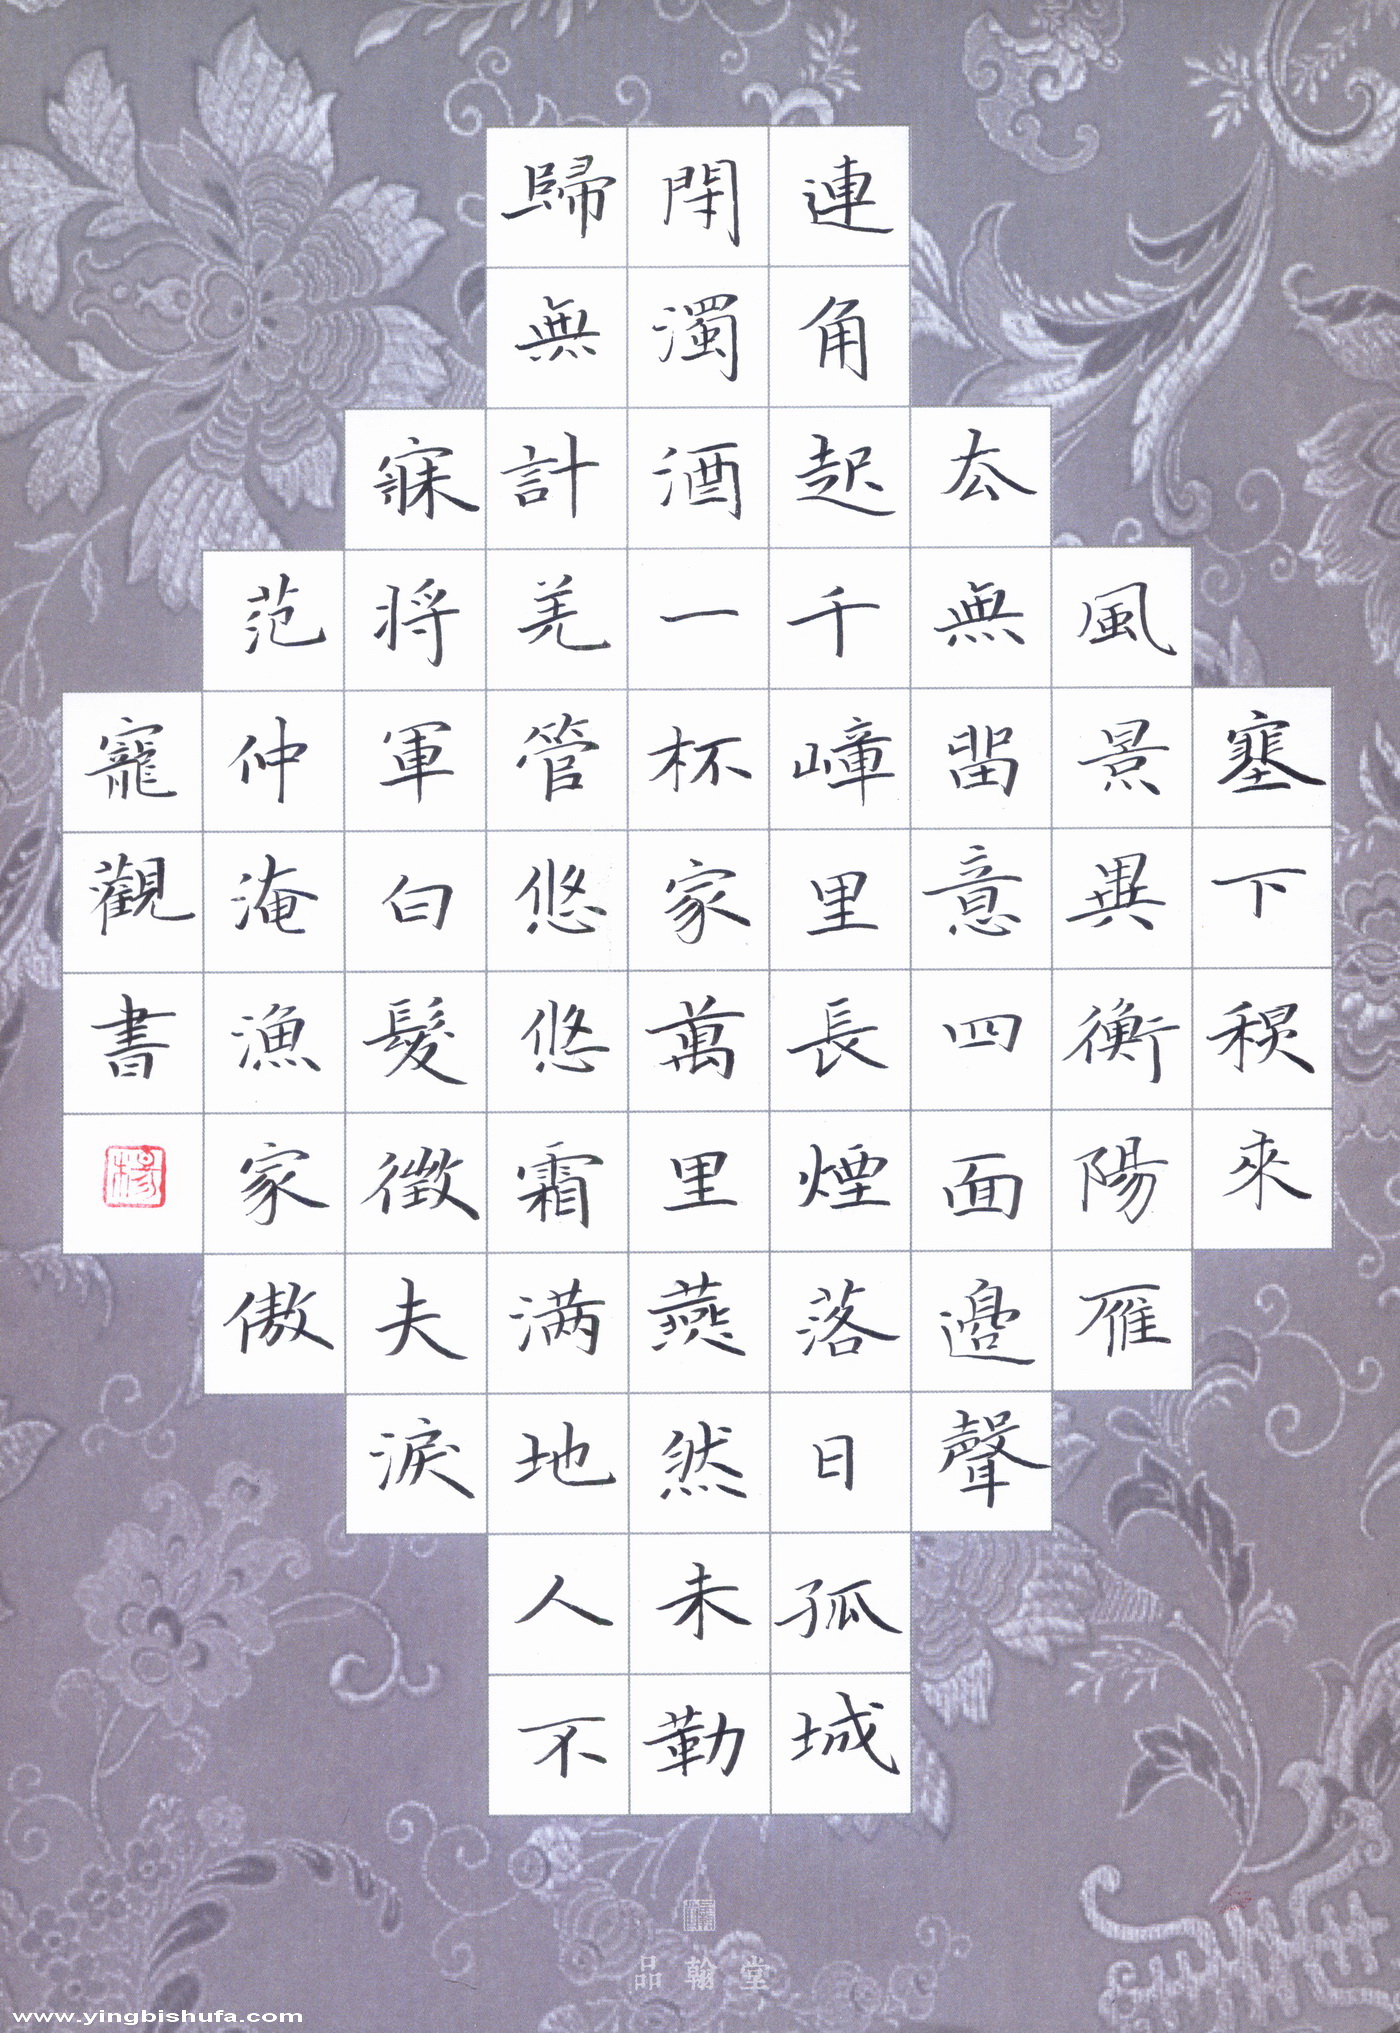 塞下秋來
風景異衡陽雁
厺無畱意四面邊聲
連角起千嶂里長煙落日孤城
閉濁酒一杯家萬里燕然未勒
歸無計羌管悠悠霜满地人不
寐将軍白髮徵夫淚
范仲淹漁家傲
寵觀書
品翰堂
www.yingbishufa.com